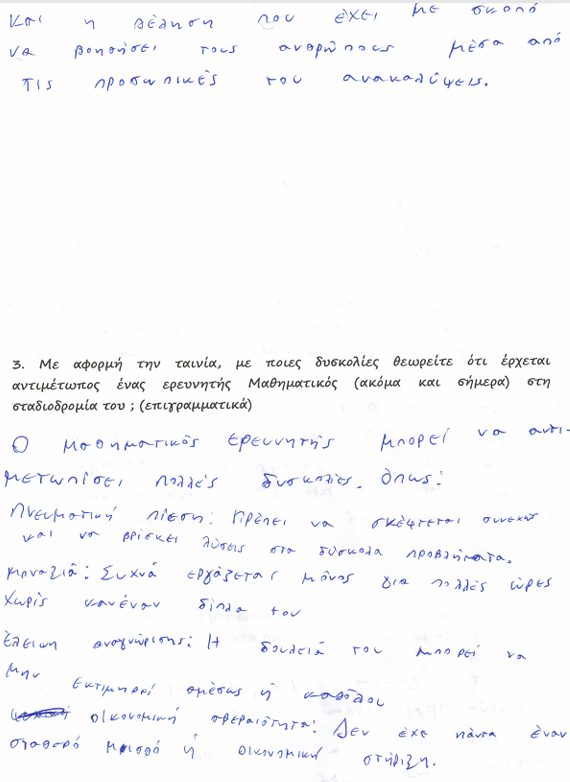 και η θέληση που έχει με σκοπό
να βοηθήσει τους ανθρώπους μέσα από
τις προσωπικές του ανακαλύψεις.
3. Με αφορμή την ταινία, με ποιες δυσκολίες θεωρείτε ότι έρχεται
αντιμέτωπος ένας ερευνητής Μαθηματικός (ακόμα και σήμερα) στη
σταδιοδρομία του ; (επιγραμματικά)
Ο μαθηματικός ερευνητής μπορεί να αντι-
μετωπίσει πολλές δυσκολίες. Όπως:
Πνευματική πίεση: Πρέπει να σκέφτεται συνεχώς
και να βρίσκει λύσεις στα δύσκολα προβλήματα.
μοναξιά: Συχνά εργάζεται μόνος για πολλές ώρες
χωρίς κανέναν δίπλα του
Έλειψη αναγνώρισης: Η δουλειά του μπορεί να
μην εκτιμηθεί αμέσως ή καθόλου
οικονομική σθεραιότητα: Δεν έχε πάντα έναν
σταθερό μισθό ή οικονομική στήριξη.